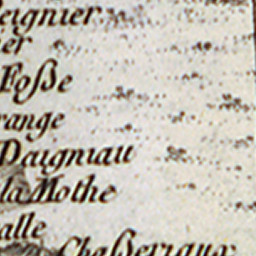 eignier
er
Foſſe
range
Daigniau
la Mothe
alle
Chaſſeriaux